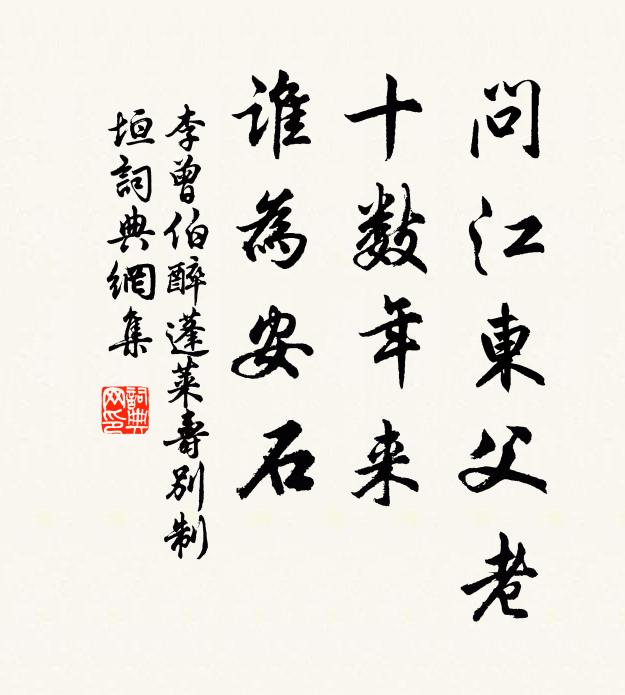 問江東父老
十數年来
誰為安石
李曾伯醉蓬萊壽別制
垣詞典網集
詞典
网印